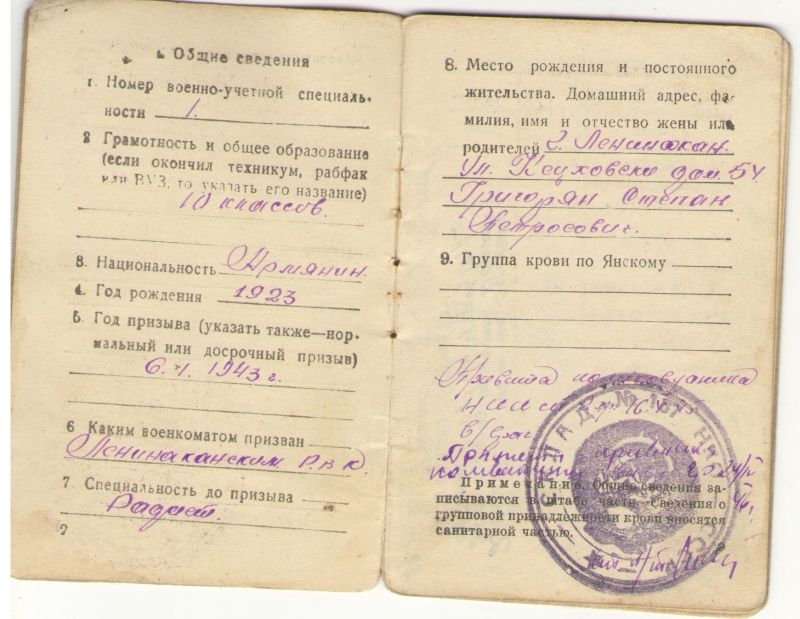 Общие сведения
1. Номер военно-учетной специаль-
ности 1.
2 Грамотность и общее образование
(если окончил техникум, рабфак
или ВУЗ, то указать его название)
10 классов.
3. Национальность Армянин.
4. Год рождения 1923
5. Год призыва (указать также—нор-
мальный или досрочный призыв)
6. 1. 1943 г.
6 Каким военкоматом призван
Ленинаканским Р.В.К.
7 Специальность до призыва
2
8. Место рождения и постоянного
жительства. Домашний адрес, фа-
милия, имя и отчество жены или
родителей г. Ленинакан.
Ул. дом. 54
Григорян Степан
Петросович.
9. Группа крови по Янскому
Примечание. Общие сведения за-
писываются в штабе части. Сведения о
групповой принадлежности крови вносятся
санитарной частью.